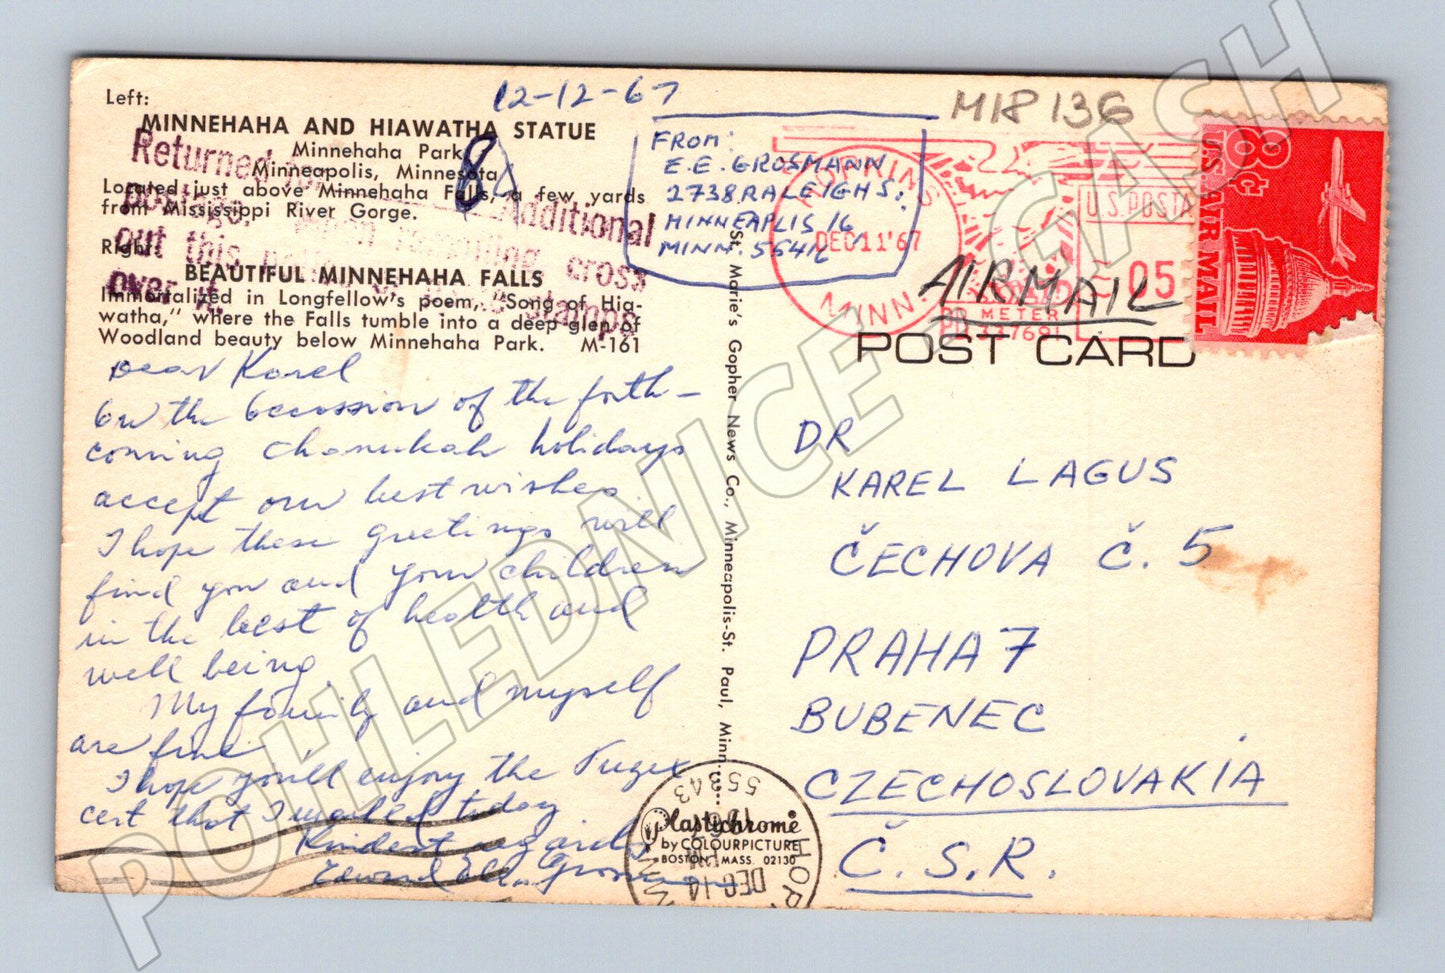 Left:
MINNEHAHA AND HIAWATHA STATUE
Minnehaha Park
Minneapolis, Minnesota
Located just above Minnehaha Falls, a few yards
from Mississippi River Gorge.
Right:
BEAUTIFUL MINNEHAHA FALLS
Immortalized in Longfellow's poem, "Song of Hia-
watha," where the Falls tumble into a deep glen of
Woodland beauty below Minnehaha Park. M-161
Returned for
postage. When remailing cross
Additional
out this
over it.
stamps
8
12-12-67
Dear Karel
On the occassion of the forth-
coming Chanukah holidays
accept our best wishes.
I hope these greetings will
find you and your children
in the best of health and
well being.
My family and myself
are fine.
I hope you'll enjoy the Tuzex
cert that I mailed today
Kindest regards,
Edward
FROM:
E.E. GROSMANN
2738 RALEIGH S.
MINNEAPLIS 16
MINN. 55416
M18 136
MINN.
DEC 11 '67
U.S. POSTA
05
METER
PB
8c
US AIR MAIL
AIRMAIL
POST CARD
St. Marie's Gopher News Co., Minneapolis-St. Paul, Minn.
DR
KAREL LAGUS
ČECHOVA Č. 5
PRAHA 7
BUBENEC
CZECHOSLOVAKIA
Č.S.R.
Plastichrome
by COLOURPICTURE
BOSTON, MASS. 02130
55343
DEC 14
HOP
MINN
POHLEDNICE GASH